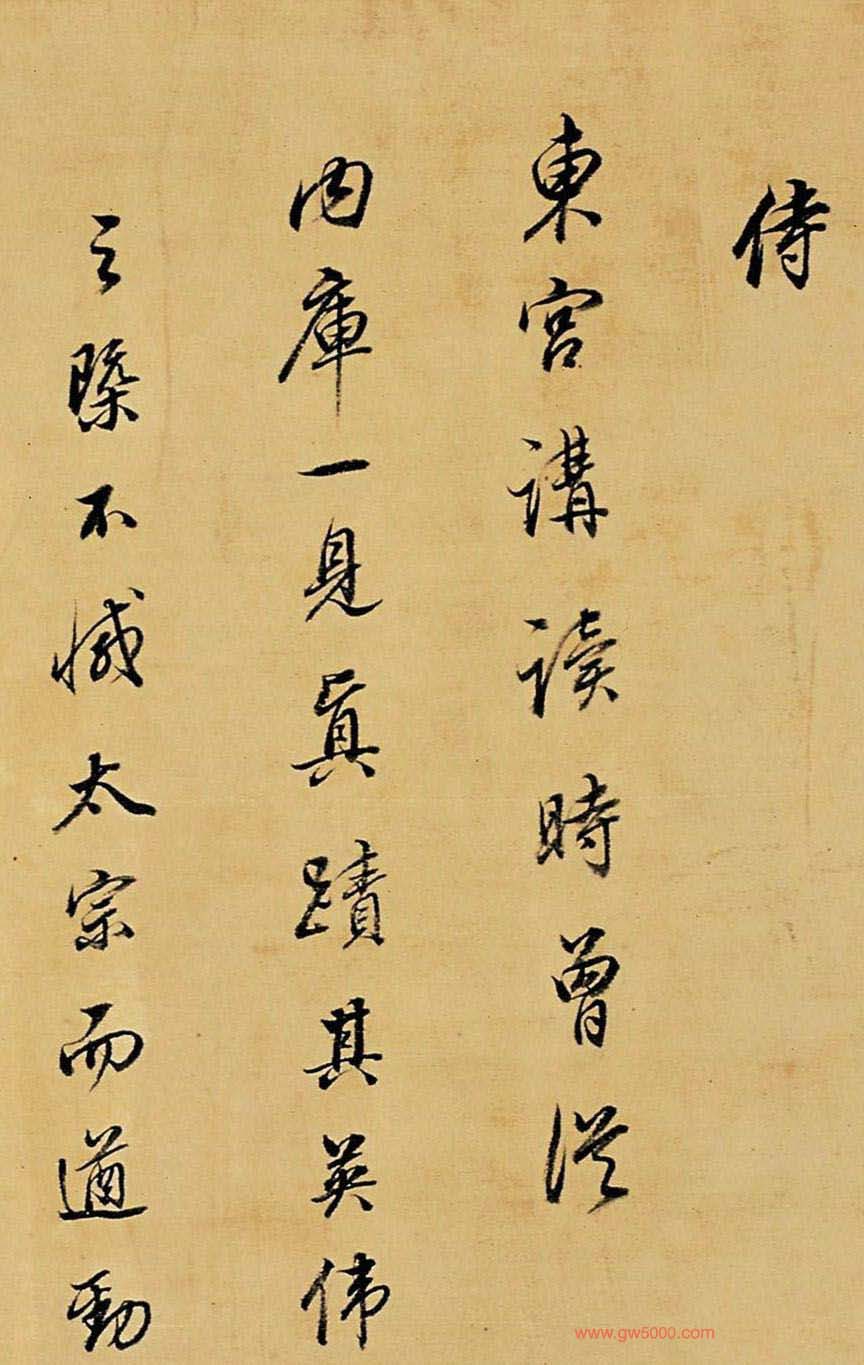 侍
東宮講讀時曾從
内庫一見真蹟其英偉
之槩不減太宗而遒勁
www.gw5000.com